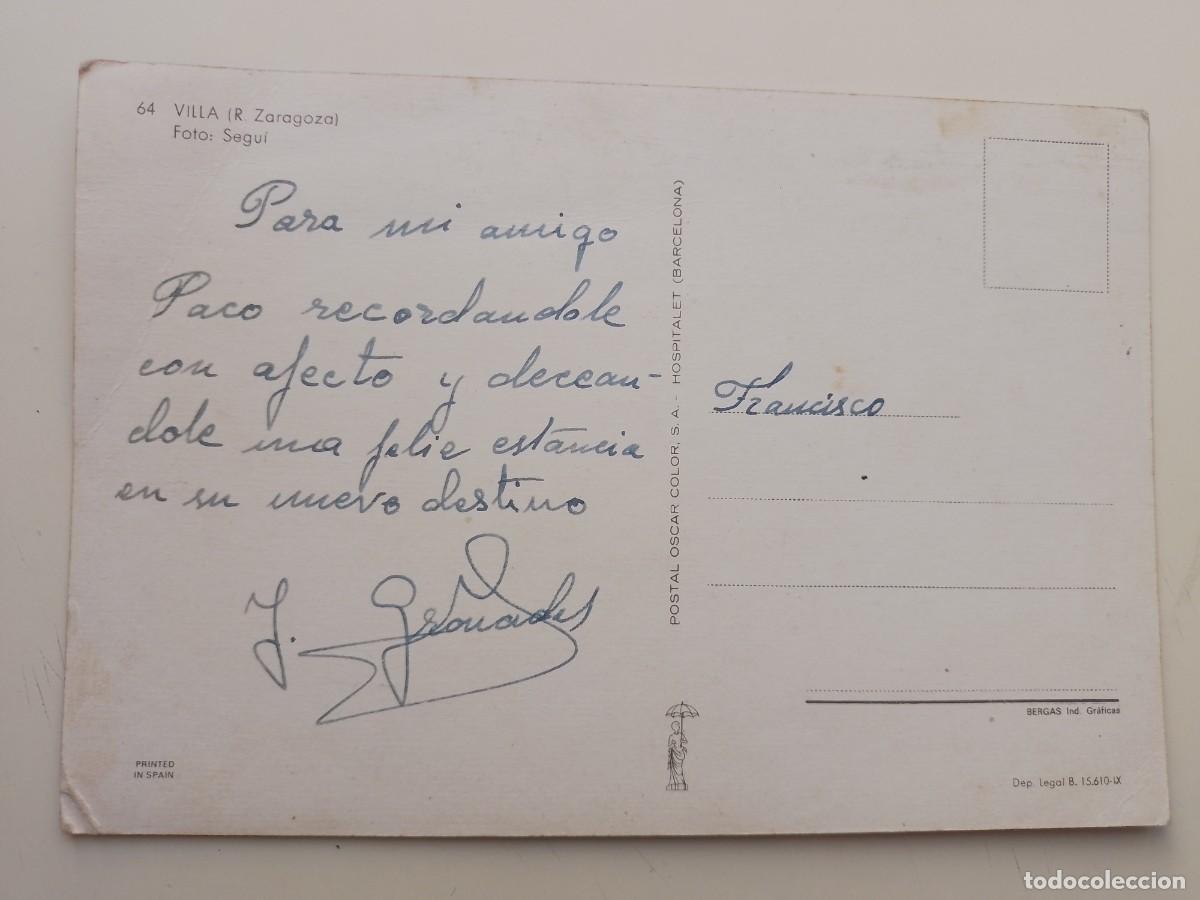 64 VILLA (R. Zaragoza)
Foto: Seguí
Para mi amigo
Paco recordandole
con afecto y decean-
dole una felic estáncia
en su nuevo destino
J. Granados
PRINTED
IN SPAIN
POSTAL OSCAR COLOR, S. A. - HOSPITALET (BARCELONA)
Francisco
BERGAS Ind. Gráficas
Dep. Legal B. 15.610-IX
todocoleccion